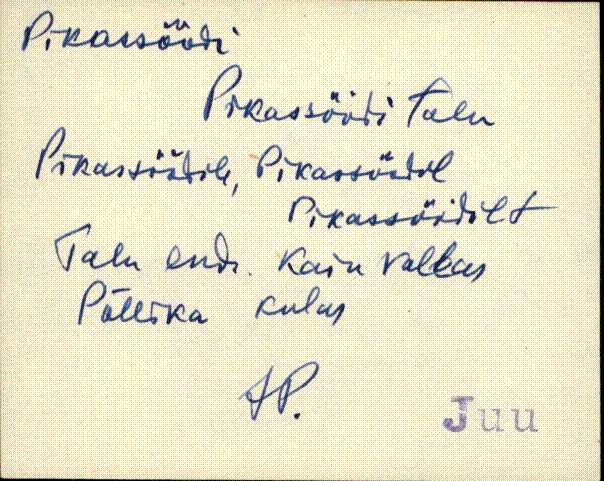 Pikassöödi
Pikassöödi talu
Pikassöödile, Pikassöödil
Pikassöödilt
Talu end. Kaiu vallas
Põllika külas
AP.
Juu